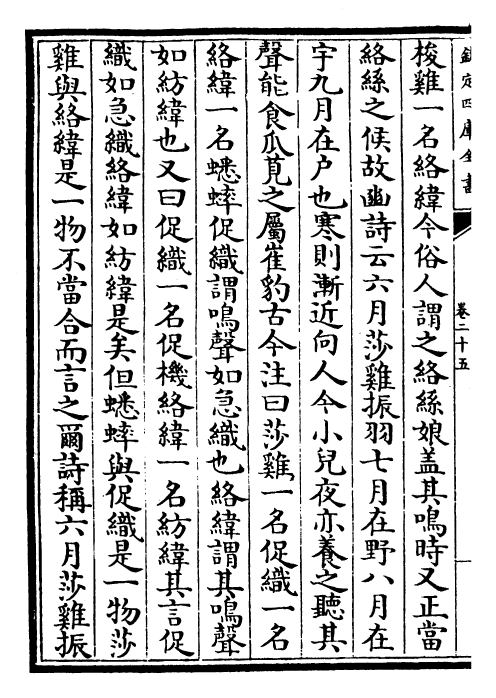 欽定四庫全書
卷二十五
梭雞一名絡緯今俗人謂之絡絲娘盖其鳴時又正當
絡絲之候故豳詩云六月莎雞振羽七月在野八月在
宇九月在户也寒則漸近向人今小兒夜亦養之聽其
聲能食瓜莧之屬崔豹古今注曰莎雞一名促織一名
絡緯一名蟋蟀促織謂鳴聲如急織也絡緯謂其鳴聲
如紡緯也又曰促織一名促機絡緯一名紡緯其言促
織如急織絡緯如紡緯是矣但蟋蟀與促織是一物莎
雞與絡緯是一物不當合而言之爾詩稱六月莎雞振